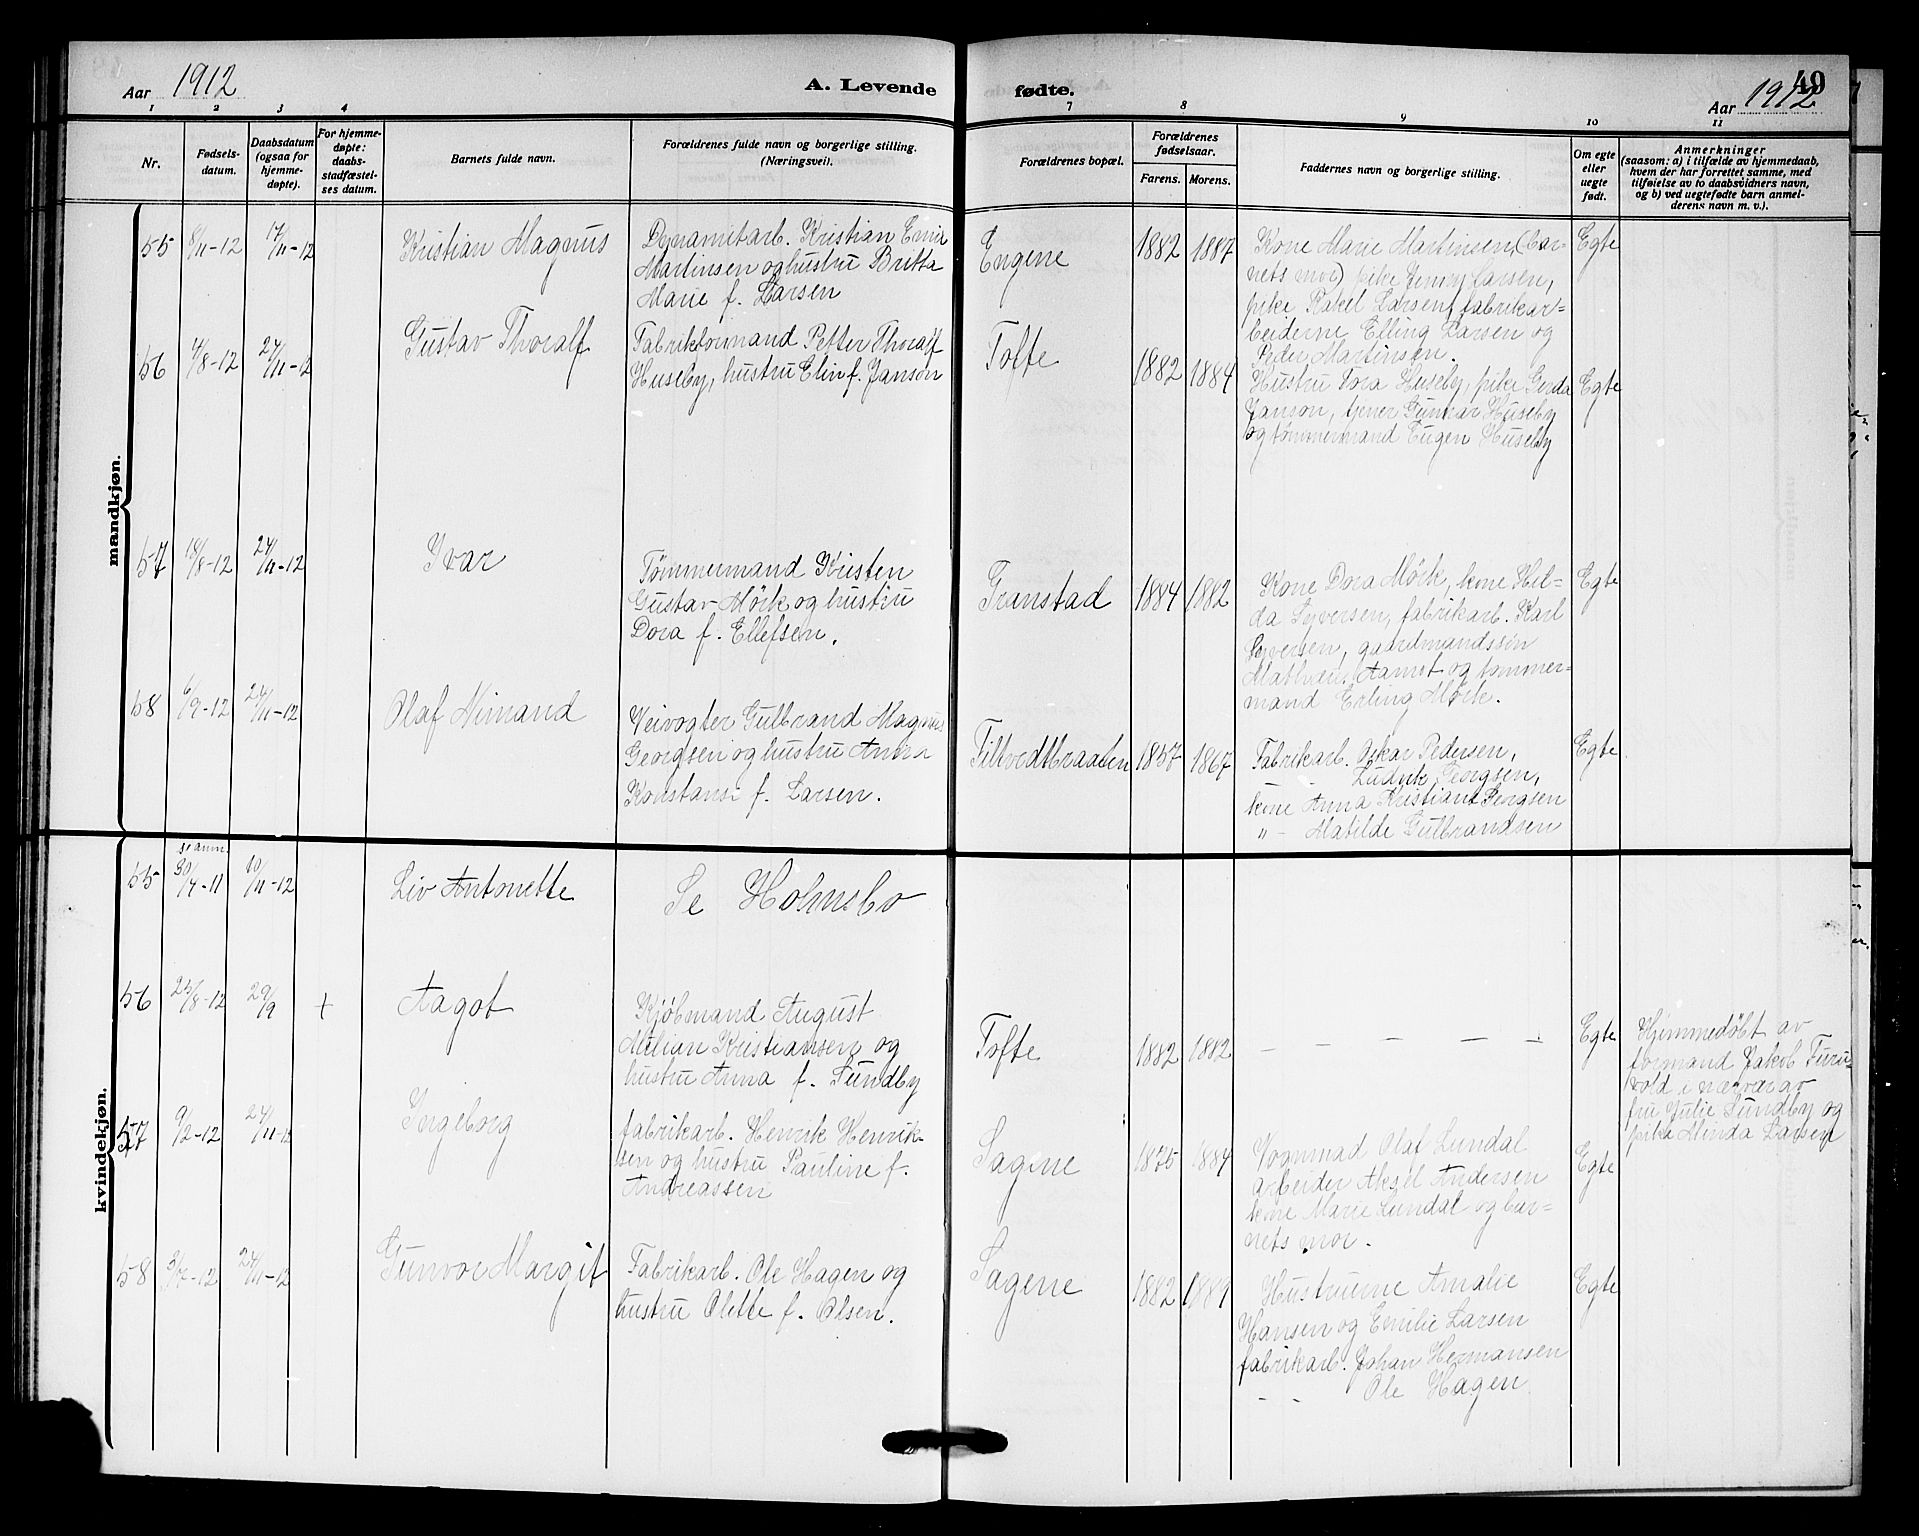 Aar 1912
A. Levende
fødte.
49
Aar 1912
1 2 3 4 7 8 9 10 11
Nr.
Fødsels-
datum.
Daabsdatum
(ogsaa for
hjemme-
døpte).
For hjemme-
døpte:
daabs-
stadfæstel-
ses datum.
Barnets fulde navn.
Forældrenes fulde navn og borgerlige stilling.
(Næringsvei).
Forældrenes bopæl.
Forældrenes
fødselsaar.
Farens. Morens.
Faddernes navn og borgerlige stilling.
Om egte
eller
uegte
født.
Anmerkninger
(saasom: a) i tilfælde av hjemmedaab,
hvem der har forrettet samme, med
tilføielse av to daabsvidners navn,
og b) ved uegtefødte barn anmel-
derens navn m. v.).
mandkjøn.
55 8/11-12 17/11-12
Kristian Magnus
Dynamitarb. Kristian Emil
Martinsen og hustru Britta
Marie f. Larsen
Engene
1882 1887
Kone Marie Martinsen, (bar-
nets mor) pike Jenny Larsen,
pike Rakel Larsen, fabrikar-
beiderne Elling Larsen og
Peder Martinsen.
Egte
56 4/8-12 24/11-12
Gustav Thoralf
Fabrikformand Petter Thoralf
Huseby, hustru Elin f. Janson
Tofte
1882 1884
Hustru Tora Huseby, pike Gerda
Janson, tjener Gunnar Huseby
og tømmermand Eugen Huseby
Egte
57 18/8-12 24/11-12
Ivar
Tømmermand Kristen
Gustav Mörk og hustru
Dora f. Ellefsen.
Granstad
1884 1882
Kone Dora Mörk, kone Hil-
da Syversen, fabrikarb. Karl
Syversen, gaardmandssøn
Aamot og tømmer-
mand Erling Mörk.
Egte
58 6/9-12 24/11-12
Olaf Nimand
Veivogter Gulbrand Magnus
Georgsen og hustru Anna
Konstanse f. Larsen.
Tiltvedtbraaten
1857 1867
Fabrikarb. Oskar Pedersen,
Ludvik Georgsen,
kone Anna Kristiane Georgsen
" - Matilde Gulbrandsen
Egte
kvindekjøn.
se anm.
55 30/7-11 10/11-12
Liv Antonette
Se Holmsbo
56 25/8-12 29/9 +
Aagot
Kjöbmand August
Milian Kristiansen og
hustru Anna f. Sundby
Tofte
1882 1882
— — — — —
Egte
Hjemmedöbt av
formand Jakob Furu-
vold i nærvær av
fru Julie Sundby og
pike Minda Larsen
57 9/2-12 24/11-12
Ingeborg
fabrikarb. Henrik Henrik-
sen og hustru Pauline f.
Andreassen
Sagene
1875 1884
Vognmad Olaf Lundal
arbeider Aksel Andersen
kone Marie Lundal og bar-
nets mor.
Egte
58 3/7-12 24/11-12
Gunvor Margit
Fabrikarb. Ole Hagen og
hustru Olette f. Olsen.
Sagene
1882 1889
Hustruerne Amalie
Hansen og Emilie Larsen
fabrikarb. Johan Hermansen
- - Ole Hagen
Egte